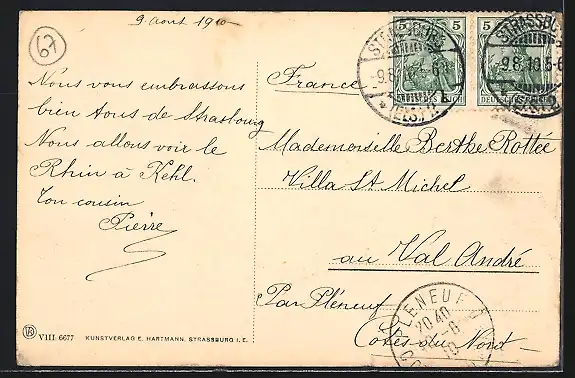 9 août 1910
67
Nous vous embrassons
bien tous de Strasbourg
Nous allons voir le
Rhin à Kehl.
Ton cousin
Pierre
VIII 6677 KUNSTVERLAG E. HARTMANN, STRASSBURG I. E.
5 5
DEUTSCHES REICH
STRASSBURG
9.8.10.5-6
(ELS.) 2
France
Mademoiselle Berthe Rottée
Villa St Michel
au Val André
Par Pléneuf
Côtes du Nord
PLENEUF
20 40